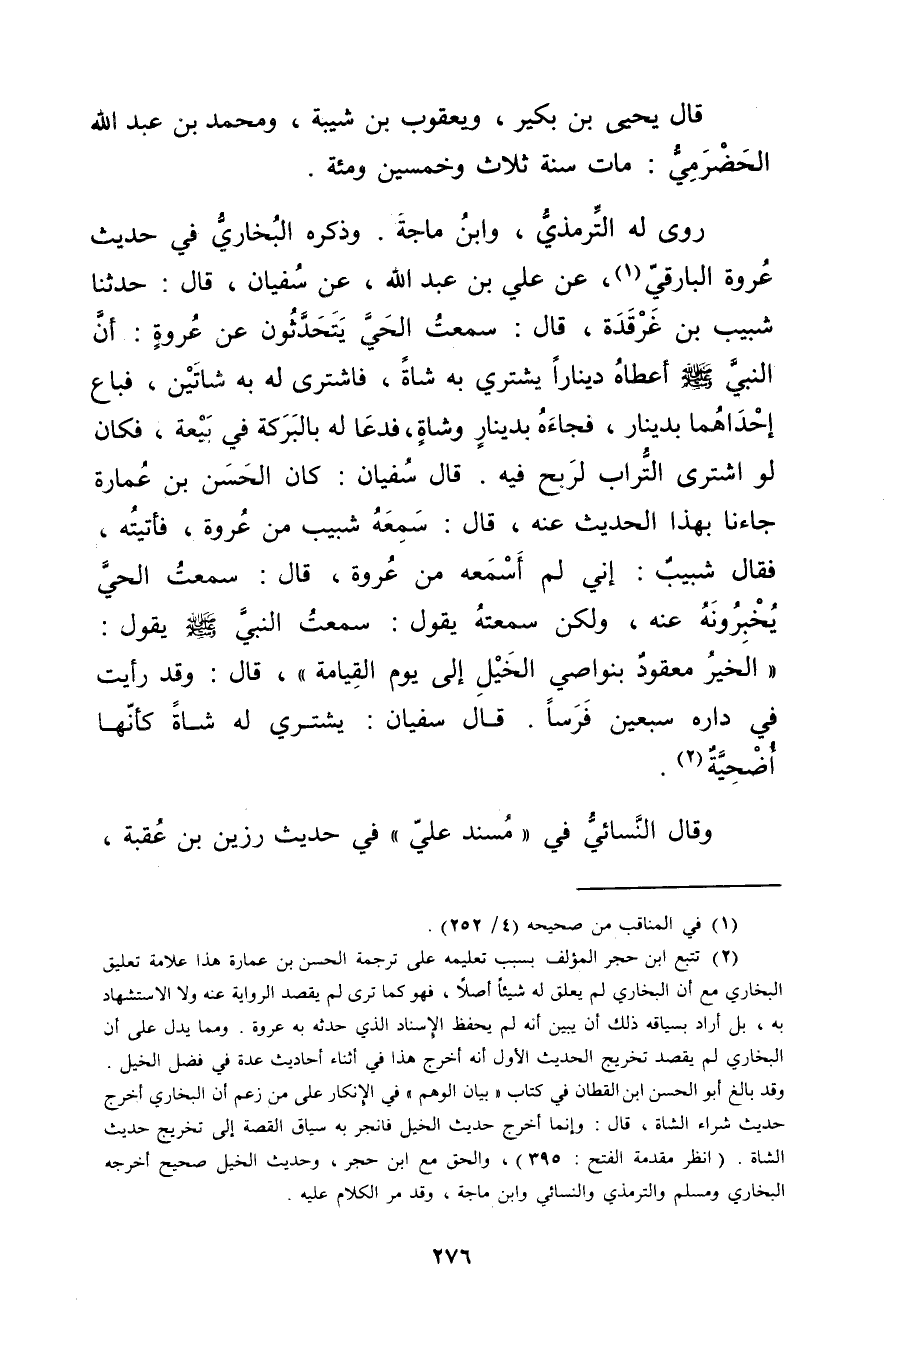 قال يحيى بن بكير ، ويعقوب بن شيبة ، ومحمد بن عبد الله
الحَضْرَمِيُّ : مات سنة ثلاث وخمسين ومئة .
روى له التِّرمذيُّ ، وابنُ ماجةَ . وذكره البُخاريُّ في حديث
عُروة البارقيّ(١)، عن علي بن عبد الله ، عن سُفيان ، قال : حدثنا
شبيب بن غَرْقَدَة ، قال : سمعتُ الحَيَّ يَتَحَدَّثُون عن عُروةٍ : أنَّ
النبيَّ ﷺ أعطاهُ ديناراً يشتري به شاةً ، فاشترى له به شاتَيْن ، فباع
إحْدَاهُما بدينار ، فجاءَهُ بدينارٍ وشاةٍ، فدعَا له بالبَرَكة في بَيْعة ، فكان
لو اشترى التُّراب لرَبح فيه . قال سُفيان : كان الحَسَن بن عُمارة
جاءنا بهذا الحديث عنه ، قال : سَمِعَهُ شبيب من عُروة ، فأتيتُه ،
فقال شبيبٌ : إني لم أَسْمَعه من عُروة ، قال : سمعتُ الحيَّ
يُخْبِرُونَهُ عنه ، ولكن سمعتهُ يقول : سمعتُ النبيَّ ﷺ يقول :
« الخيرُ معقودٌ بنواصي الخَيْلِ إلى يوم القِيامة » ، قال : وقد رأيت
في داره سبعين فَرَساً . قال سفيان : يشتري له شاةً كأنّها
أُضْحِيَّةٌ(٢) .
وقال النَّسائيُّ في « مُسند عليّ » في حديث رزين بن عُقبة ،
(١) في المناقب من صحيحه (٤/ ٢٥٢) .
(٢) تتبع ابن حجر المؤلف بسبب تعليمه على ترجمة الحسن بن عمارة هذا علامة تعليق
البخاري مع أن البخاري لم يعلق له شيئاً أصلاً ، فهو كما ترى لم يقصد الرواية عنه ولا الاستشهاد
به ، بل أراد بسياقه ذلك أن يبين أنه لم يحفظ الإسناد الذي حدثه به عروة . ومما يدل على أن
البخاري لم يقصد تخريج الحديث الأول أنه أخرج هذا في أثناء أحاديث عدة في فضل الخيل .
وقد بالغ أبو الحسن ابن القطان في كتاب « بيان الوهم » في الإنكار على من زعم أن البخاري أخرج
حديث شراء الشاة ، قال : وإنما أخرج حديث الخيل فانجر به سياق القصة إلى تخريج حديث
الشاة . ( انظر مقدمة الفتح : ٣٩٥ ) ، والحق مع ابن حجر ، وحديث الخيل صحيح أخرجه
البخاري ومسلم والترمذي والنسائي وابن ماجة ، وقد مر الكلام عليه .
٢٧٦